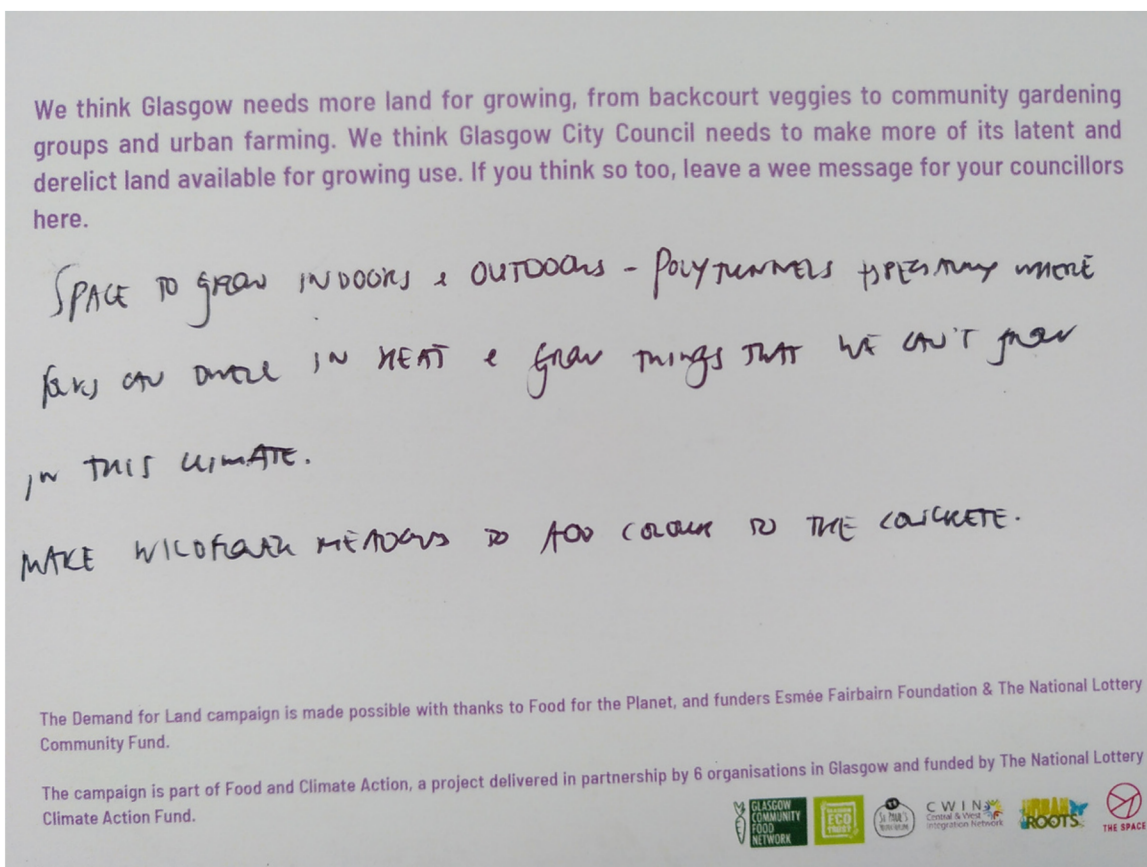 We think Glasgow needs more land for growing, from backcourt veggies to community gardening
groups and urban farming. We think Glasgow City Council needs to make more of its latent and
derelict land available for growing use. If you think so too, leave a wee message for your councillors
here.
SPACE TO GROW INDOORS & OUTDOORS - POLYTUNNELS ESPECIALLY WHERE
FOLKS CAN DWELL IN HEAT & GROW THINGS THAT WE CAN'T GROW
IN THIS CLIMATE.
MAKE WILDFLOWER MEADOWS TO ADD COLOUR TO THE CONCRETE.
The Demand for Land campaign is made possible with thanks to Food for the Planet, and funders Esmée Fairbairn Foundation & The National Lottery
Community Fund.
The campaign is part of Food and Climate Action, a project delivered in partnership by 6 organisations in Glasgow and funded by The National Lottery
Climate Action Fund.
GLASGOW
COMMUNITY
FOOD
NETWORK
ECO
TRUST
ST PAUL'S
CWIN
Central & West
Integration Network
URBAN
ROOTS
THE SPACE